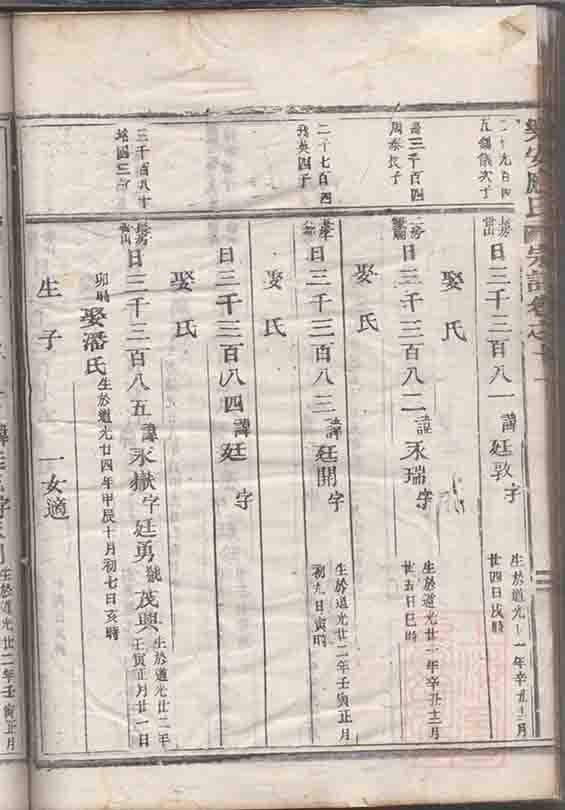 二千九百四
五錫儀次子
長房
日三千三百八一諱廷敦字
生於道光廿一年辛丑十二月
廿四日戌時
娶氏
三千百四
周泰長子
二房
日三千三百八二諱永瑞字
生於道光廿一年辛丑十二月
廿五日巳時
娶氏
二千七百四
日三千三百八三諱廷開字
生於道光廿二年壬寅正月
初九日寅時
娶氏
日三千三百八四諱廷字
娶氏
三千百八十
長房
日三千三百八五諱永嶽字廷勇號茂興
生於道光廿二年
壬寅正月廿一日
卯時
娶潘氏
生於道光廿四年甲辰十月初七日亥時
生子
一女適
生於道光廿二年壬寅正月